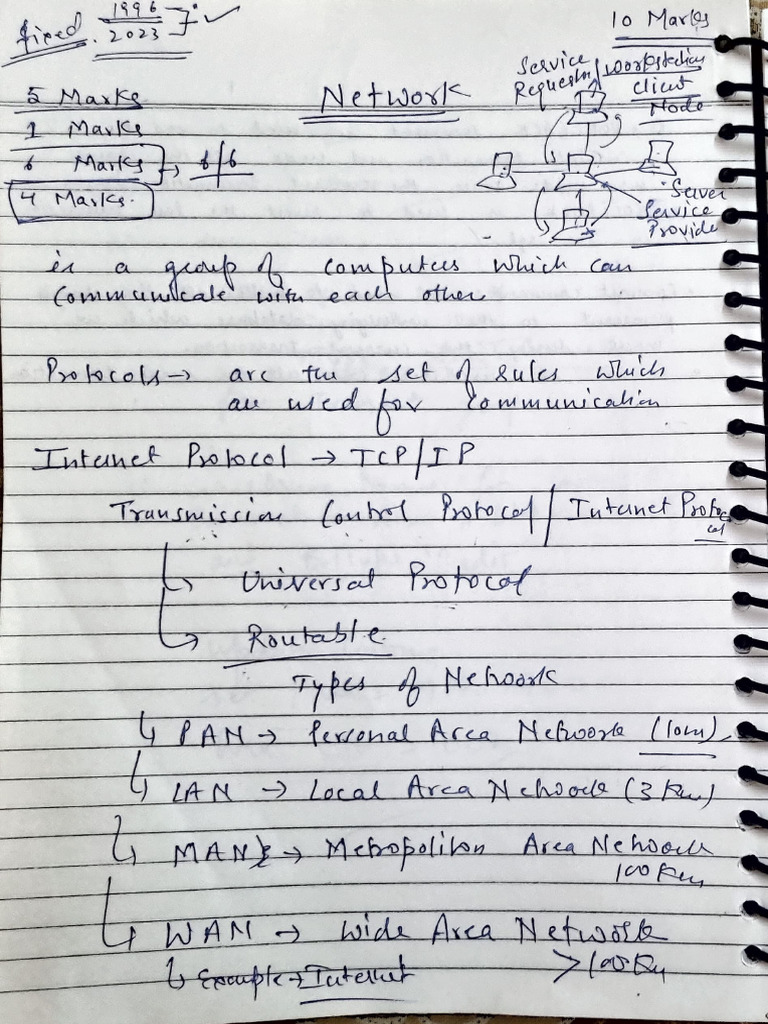 fixed 1996
2023
10 Marks
5 Marks
1 Marks
6 Marks → 6/6
4 Marks.
Network
Service
Requestor/workstation
Client
Node
Server
Service
Provide
is a group of computers which can
Communicate with each other
Protocols → are the set of rules which
are used for communication
Internet Protocol → TCP/IP
Transmission Control Protocol / Internet Protocol
Universal Protocol
Routable
Types of Network
PAN → Personal Area Network (10m)
LAN → Local Area Network (3 Km)
MAN → Metropoliton Area Network
100 Km
WAN → Wide Area Network
Example → Internet >100 Km